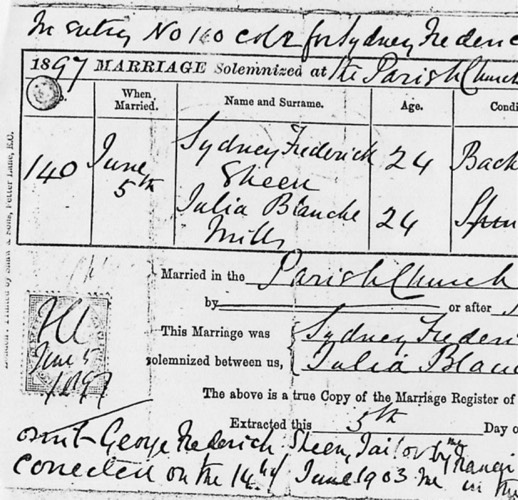 In entry No 140 col 2 for Sydney Frederic
1897 MARRIAGE Solemnized at the Parish Church
When Married. Name and Surname. Age. Condi
140 June 5th Sydney Frederick Sheen 24 Bach
Julia Blanche Mills 24 Spin
Married in the Parish Church
by or after
This Marriage was solemnized between us, Sydney Frederi
Julia Blanc
The above is a true Copy of the Marriage Register of
Extracted this 5th Day o
June 5
1897
omit George Frederick Sheen, Tailor by
Corrected on the 14th June 1903 in the